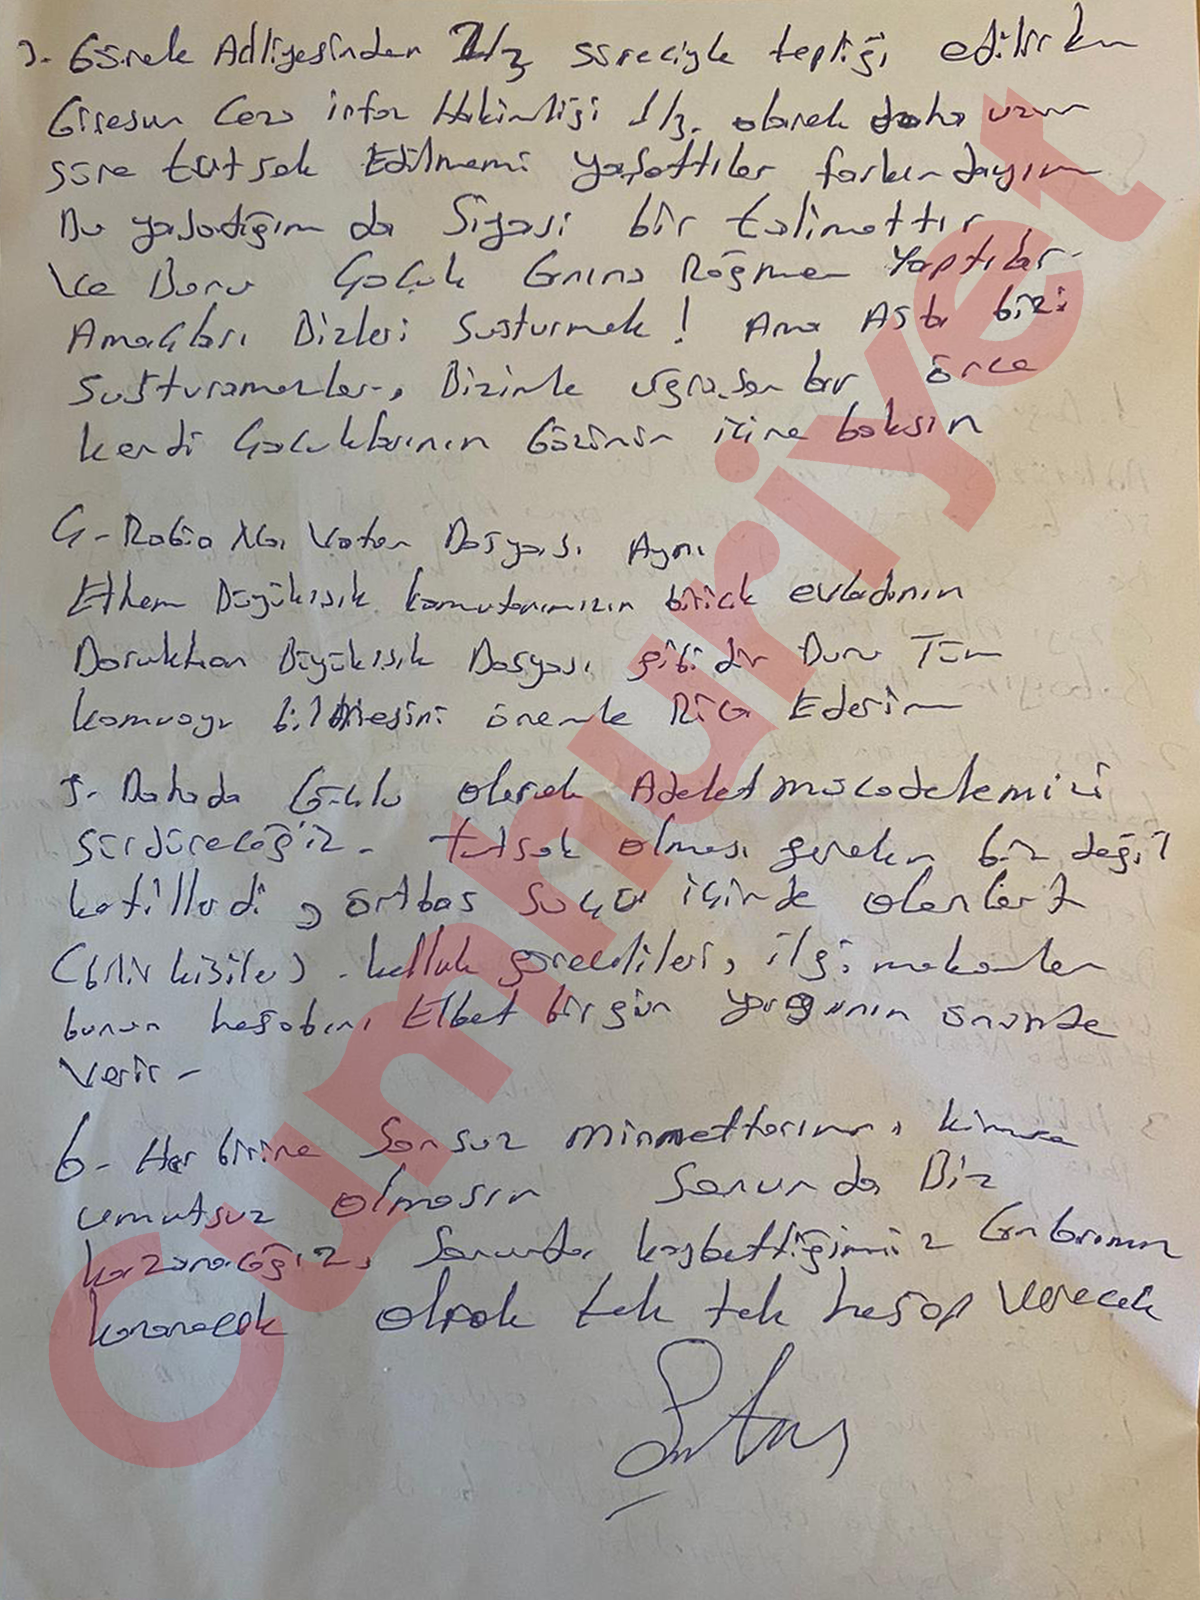 3- Görele Adliyesinden 2/3 süreciyle tepliği edilirken
Giresun Ceza infaz Hakimliği 1/3. olarak daha uzun
süre tutsak Edilmemi yaşattılar farkındayım
Bu yaşadığım da Siyasi bir talimattır
Ve Bunu Çocuk Rağmen Yaptılar-
Amaçları Bizleri Susturmak! Ama Asla bizi
Susturamazlar, Bizimle uğraşanlar önce
kendi Çocuklarının Gözünün içine baksın
4- Rabia Naz Vatan Dosyası Aynı
Ethem Büyükışık komutanımızın biricik evladının
Dorukhan Büyükışık Dosyası gibidir Bunu Tüm
kamuoyu bilmesini önemle Rica Ederim
5- Dahada Güçlü olarak Adalet mücadelemizi
Sürdüreceğiz- tutsak olması gereken biz değil
katillerdi, örtbas suçu içinde olanlardı
kişiler) - kolluk görevlileri, ilgi makamlar
bunun hesabını Elbet bir gün yargının önünde
Verir-
6- Her birine Sonsuz minnettarım, kimse
umutsuz olmasın Sonunda Biz
kazanacağız,
kazanacak olarak tek tek hesap verecek